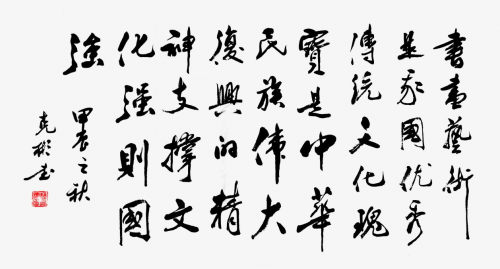 書畫藝術
是我國优秀
傳統文化瑰
寶是中華
民族伟大
復興的精
神支撐文
化強則國
強
甲辰之秋
克彬书